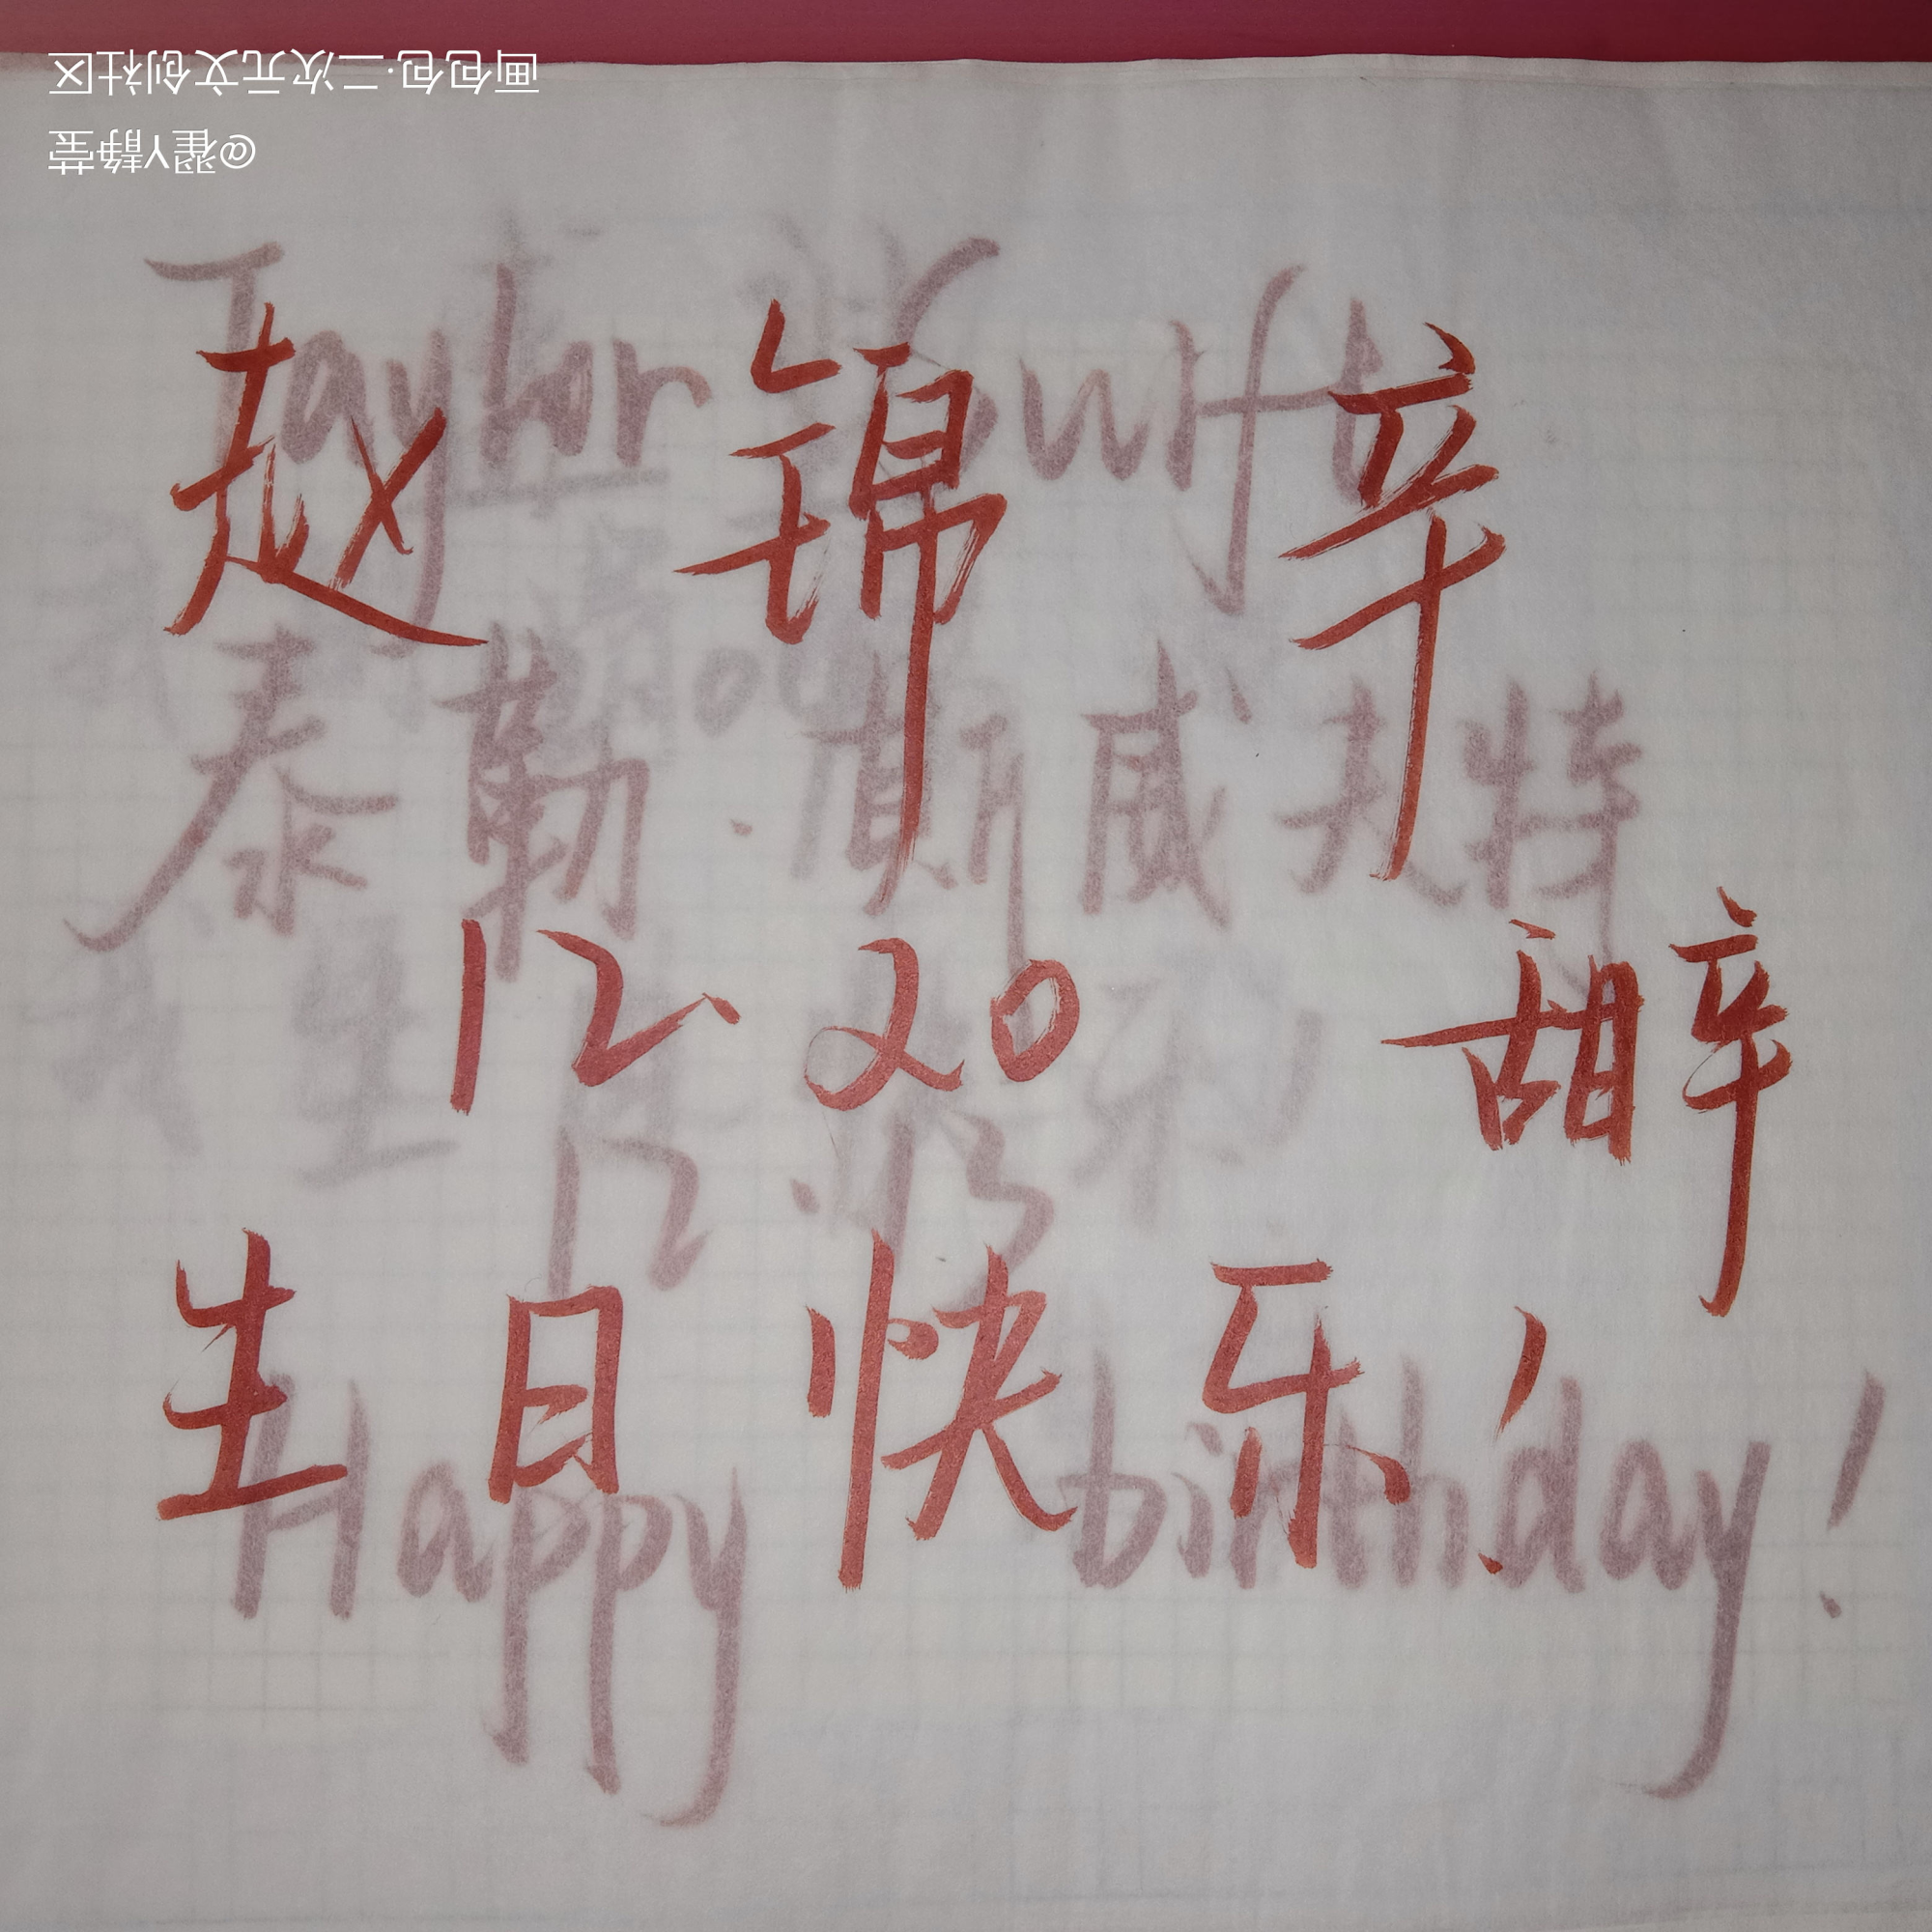 画包包·二次元文创社区
@翟Y静莹
赵锦辛
12.20 甜辛
生日快乐！
Taylor Swift
泰勒·斯威夫特
12.13
Happy birthday!